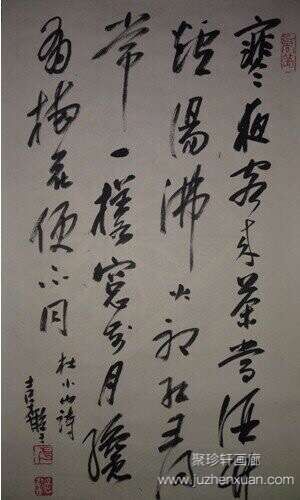 寒夜客来茶當酒竹
爐湯沸火初紅尋
常一樣窗前月纔
有梅花便不同
杜小山詩
聚珍轩画廊
www.juzhenxuan.com